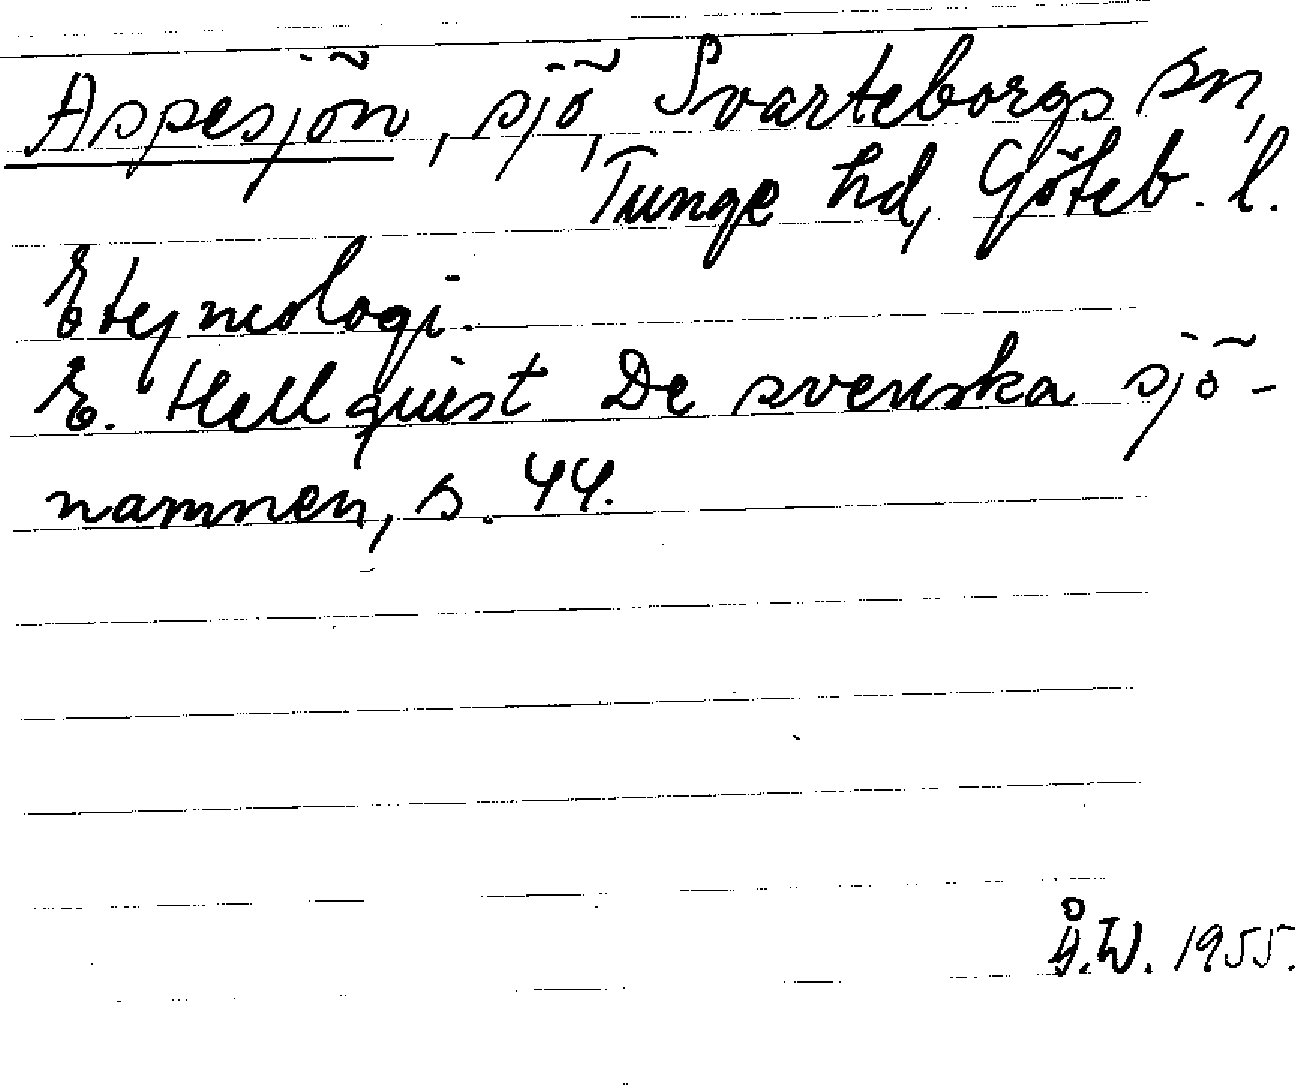 Aspesjön, sjö, Svarteborgs sn,
Tunge hd, Göteb. l.
Etymologi.
E. Hellquist De svenska sjö-
namnen, s. 44.
Å.W. 1955.